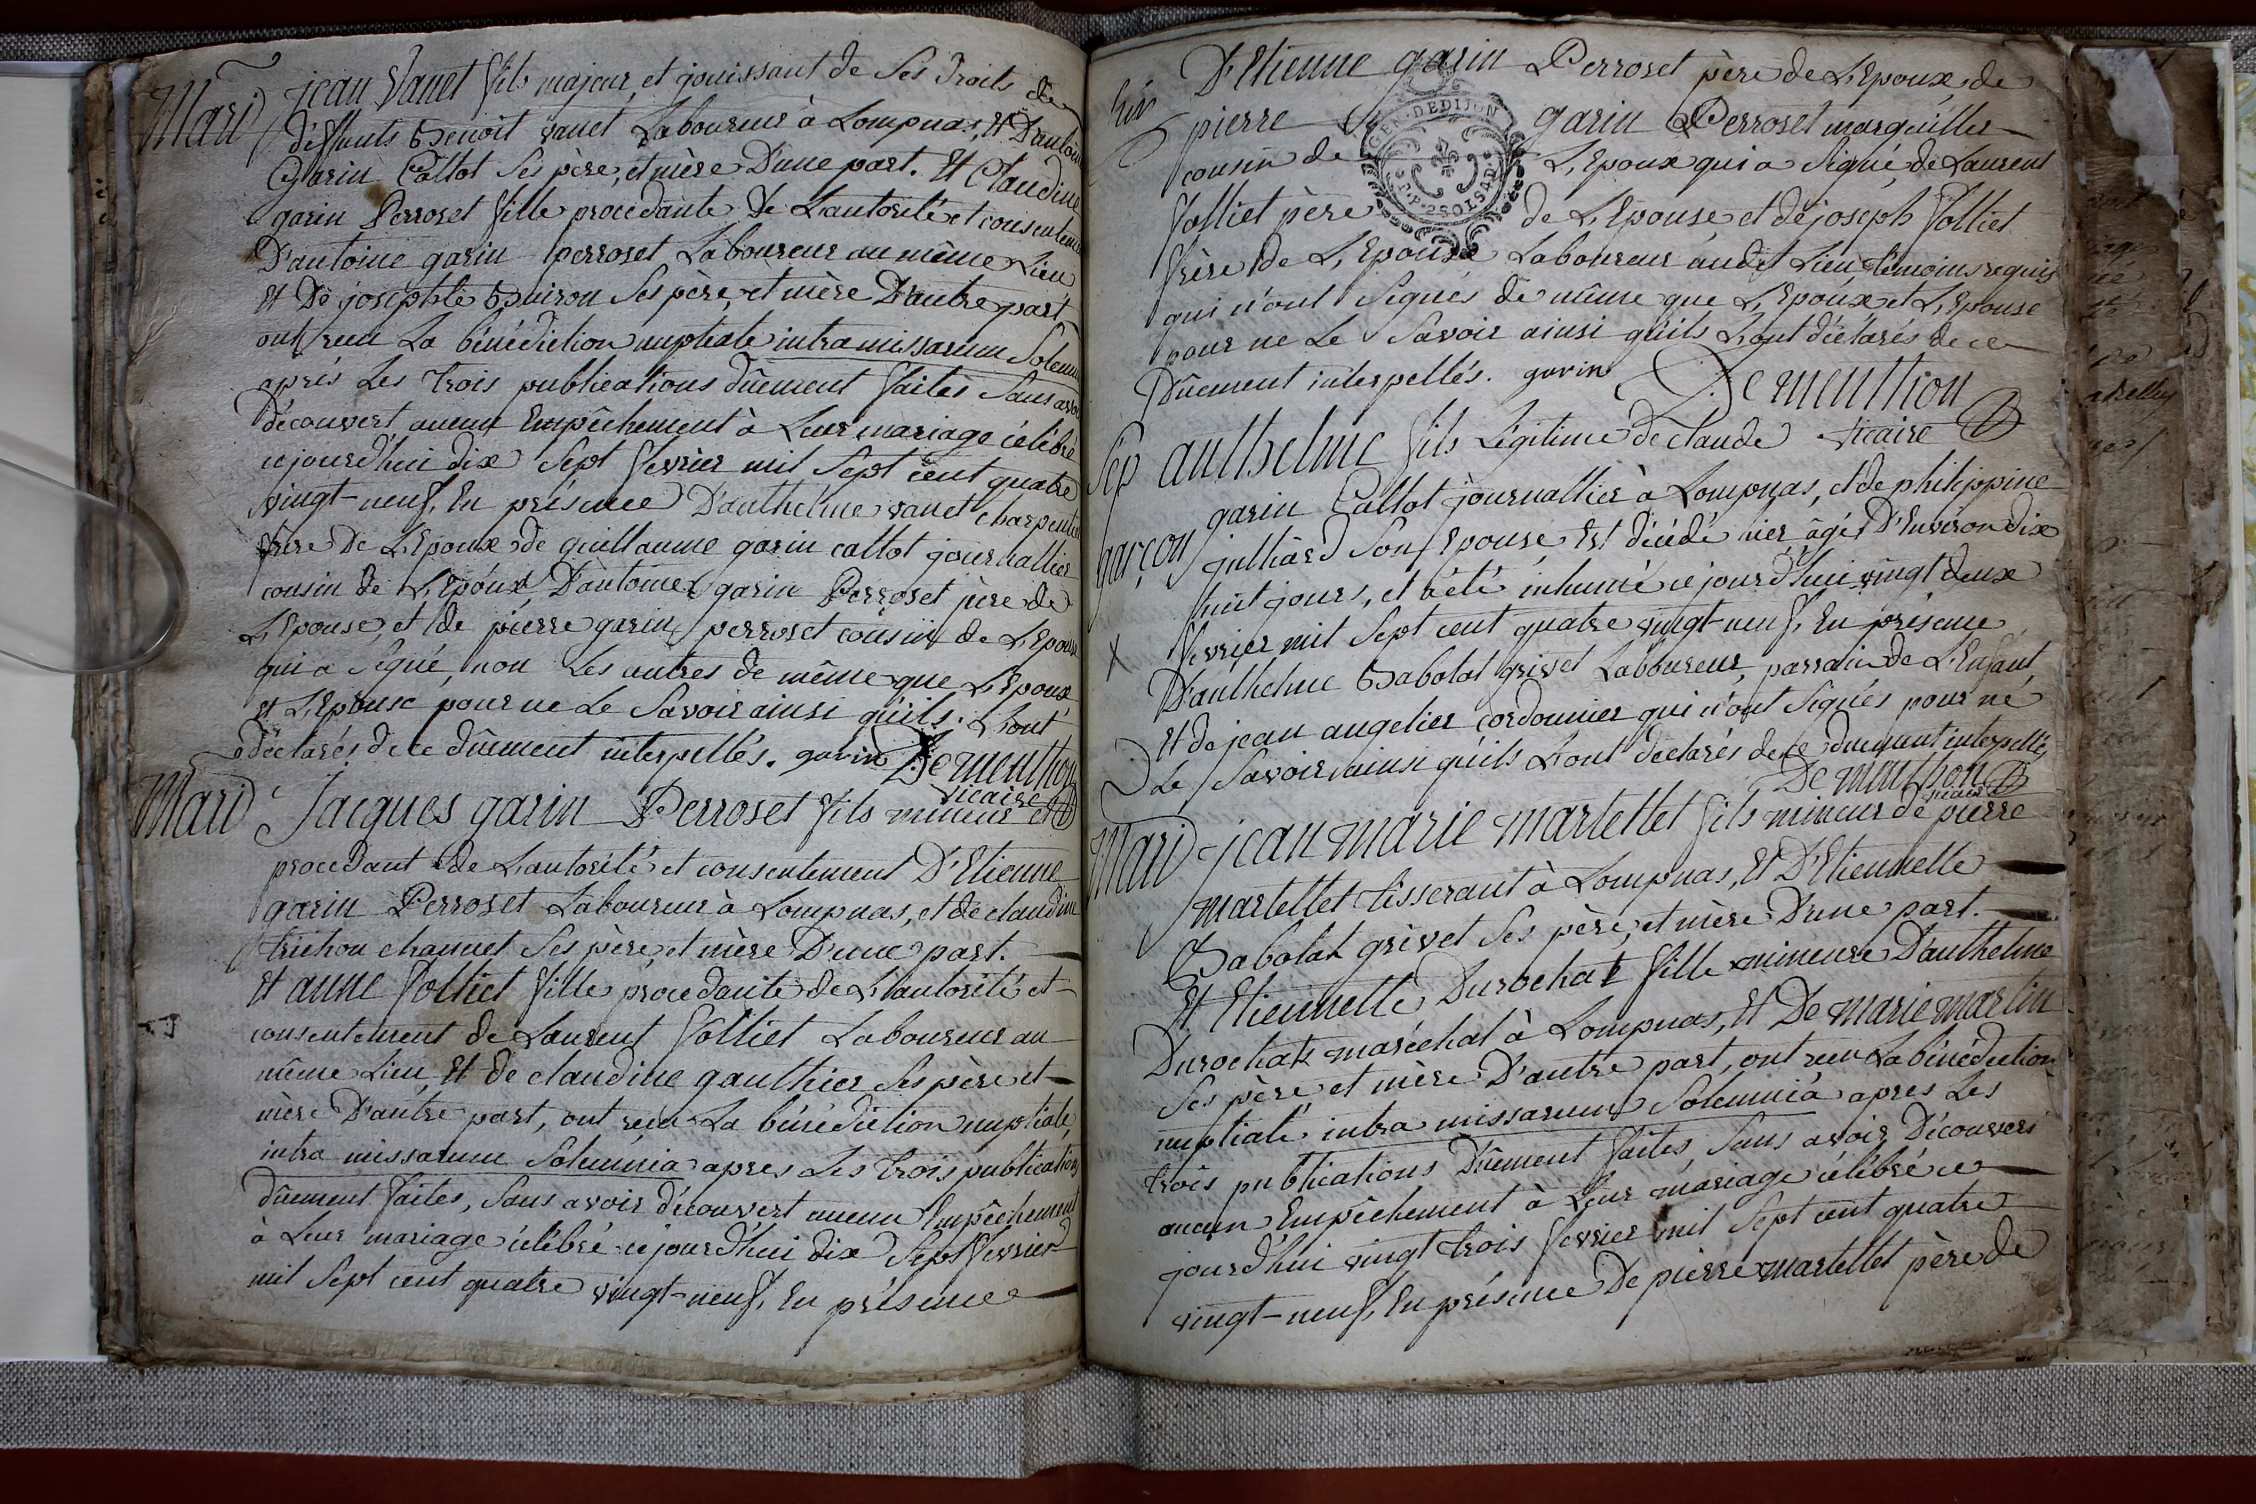 Mari
jean Vanet fils majeur, et jouissant de ses droits de
déffunts Benoît vanet Laboureur à Lompnas, et D'antoine
Garin Cattot ses père, et mère D'une part. Et Claudine
garin Perroset fille procedante de L'autorité et consentement
D'antoine garin perroset Laboureur au même Lieu
Et De josephte Buiron ses père, et mère D'autre part
ont recu La bénédiction nuptiale intra missarum Solemnia
après Les trois publications dûement faites sans avoir
Découvert aucun Empêchement à Leur mariage célébré
cejourd'hui dix Sept fevrier mil Sept cent quatre
vingt-neuf, En présence D'anthelme vanet charpentier
frere De L'Epoux de guillaume garin cattot journallier
cousin de L'Epoux D'antoine garin Perroset père de
L'Epouse, et de pierre garin perroset cousin de L'Epouse
qui a signé, non Les autres de même que L'Epoux
et L'Epouse pour ne Le Savoir ainsi qu'ils L'ont
déclarés de ce dûement interpellés. garin Dementhon
vicaire
Mari
Jacques garin Perroset fils mineur et
procedant de L'autorité et consentement D'Etienne
garin Perroset Laboureur à Lompnas, et de claudine
trichon chamet Ses père, et mère D'une part.
Et anne folliet fille procedante de L'autorité et
consentement de Laurent folliet Laboureur au
même Lieu, Et de claudine gauthier Ses père et
mère D'autre part, ont recu La bénédiction nuptiale,
intra missarum Solemnia apres Les trois publications
dûement faites, Sans avoir découvert aucun Empêchement
à Leur mariage célébré cejourd'hui dix Sept fevrier
mil Sept cent quatre vingt-neuf, En présence
D'Etienne garin Perroset père de L'Epoux, de
pierre garin Perroset marguillier
cousin de L'Epoux qui a signé, de Laurent
folliet père de L'Epouse, et de joseph folliet
frère de L'Epouse Laboureur audit Lieu, témoins requis
qui n'ont Signés de même que L'Epoux et L'Epouse
pour ne Le Savoir ainsi qu'ils L'ont déclarés de ce
Dûement interpellés. garin Dementhon
vicaire
GEN. DE DIJON
2 SOLS
Sep
garçon
anthelme fils Légitime de claude
garin Cattot journallier à Lompnas, et de philippine
julliard Son Epouse Est décédé hier âgé D'Environ dix
huit jours, et a été inhumé cejourd'hui vingt deux
fevrier mil Sept cent quatre vingt-neuf, En présence
D'anthelme Babolat grivet Laboureur, parrain de L'Enfant,
et de jean angelier cordonnier qui n'ont Signés pour ne
Le Savoir ainsi qu'ils L'ont déclarés de ce duement interpellés
Dementhon
vicaire
Mari
jean marie martellet fils mineur de pierre
martellet tisserant à Lompnas, Et D'Etiennette
Babolat grivet Ses père, et mère D'une part.
Et Etiennette Durochat fille mineure D'anthelme
Durochat maréchal à Lompnas, Et De marie martin
Ses père et mère D'autre part, ont recu La bénédiction
nuptiale intra missarum Solemnia apres Les
trois publications Dûement faites, Sans avoir Découvert
aucun Empêchement à Leur mariage célébré ce
jourd'hui vingt trois fevrier mil Sept cent quatre
vingt-neuf, En présence De pierre martellet père de